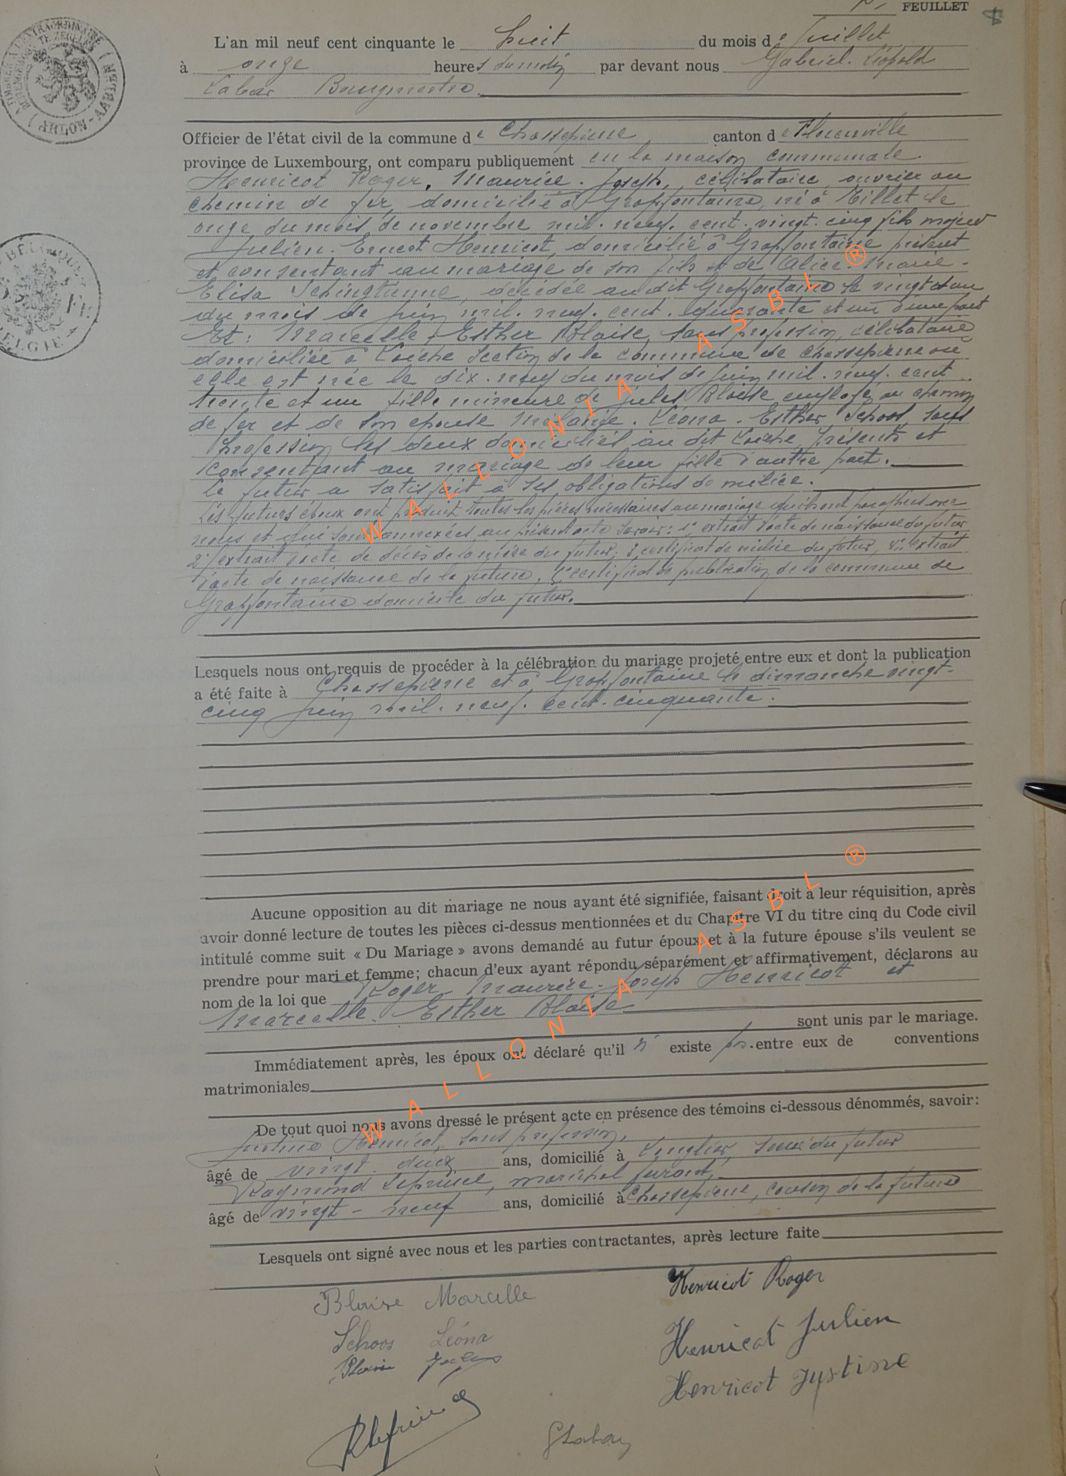 FEUILLET
L'an mil neuf cent cinquante le huit du mois de Juillet
à onze heures du matin par devant nous Gabriel. Léopold
Labar Bourgmestre.
Officier de l'état civil de la commune de Chassepierre canton de Florenville
province de Luxembourg, ont comparu publiquement en la maison communale
Henricot Roger, Maurice. Joseph, célibataire ouvrier au
chemin de fer, domicilié à Grapfontaine, né à Tillet le
onze du mois de novembre mil. neuf. cent. vingt. cinq fils majeur
Julien. Ernest Henricot, domicilié à Grapfontaine présent
et consentant au mariage de son fils et de Alice. Marie.
Elisa Schingtienne, décédée au dit Grapfontaine le vingt et un
du mois de juin mil. neuf. cent. quarante et un d'une part
Et: Marcelle. Esther Blaise, sans profession, célibataire
domiciliée à Laiche section de la commune de Chassepierre où
elle est née le dix. neuf du mois de juin mil. neuf. cent
trente et un fille mineure de Jules Blaise employé au chemin
de fer et de son épouse Mélanie. Léona. Esther Schoos sans
profession les deux domiciliés au dit Laiche, présents et
consentant au mariage de leur fille d'autre part.
le futur a satisfait à ses obligations de milice.
Les futurs époux ont produit toutes les pièces nécessaires au mariage
nous et qui sont annexées au présent acte savoir: 1° extrait d'acte de naissance du futur
2° extrait d'acte de décès de la mère du futur, 3° certificat de milice du futur, 4° extrait
d'acte de naissance de la future, 5° certificat de publication de la commune de
Grapfontaine domicile du futur.
Lesquels nous ont requis de procéder à la célébration du mariage projeté entre eux et dont la publication
a été faite à Chassepierre et à Grapfontaine le dimanche vingt-
cinq juin mil. neuf. cent. cinquante.
Aucune opposition au dit mariage ne nous ayant été signifiée, faisant droit à leur réquisition, après
avoir donné lecture de toutes les pièces ci-dessus mentionnées et du Chapitre VI du titre cinq du Code civil
intitulé comme suit « Du Mariage » avons demandé au futur époux et à la future épouse s'ils veulent se
prendre pour mari et femme; chacun d'eux ayant répondu séparément et affirmativement, déclarons au
nom de la loi que Roger. Maurice. Joseph Henricot et
Marcelle. Esther Blaise
sont unis par le mariage.
Immédiatement après, les époux ont déclaré qu'il n' existe pas entre eux de conventions
matrimoniales
De tout quoi nous avons dressé le présent acte en présence des témoins ci-dessous dénommés, savoir:
Justine Henricot, sans profession,
âgé de vingt. deux ans, domicilié à Longlier, soeur du futur
Raymond Leprince, maréchal ferrant,
âgé de vingt - neuf ans, domicilié à Chassepierre, cousin de la future
Lesquels ont signé avec nous et les parties contractantes, après lecture faite
Blaise Marcelle
Henricot Roger
Schoos Léona
Henricot Julien
Blaise Jules
Henricot Justine
RLeprince
GLabar
WALLONIA ASBL ®
WALLONIA ASBL ®